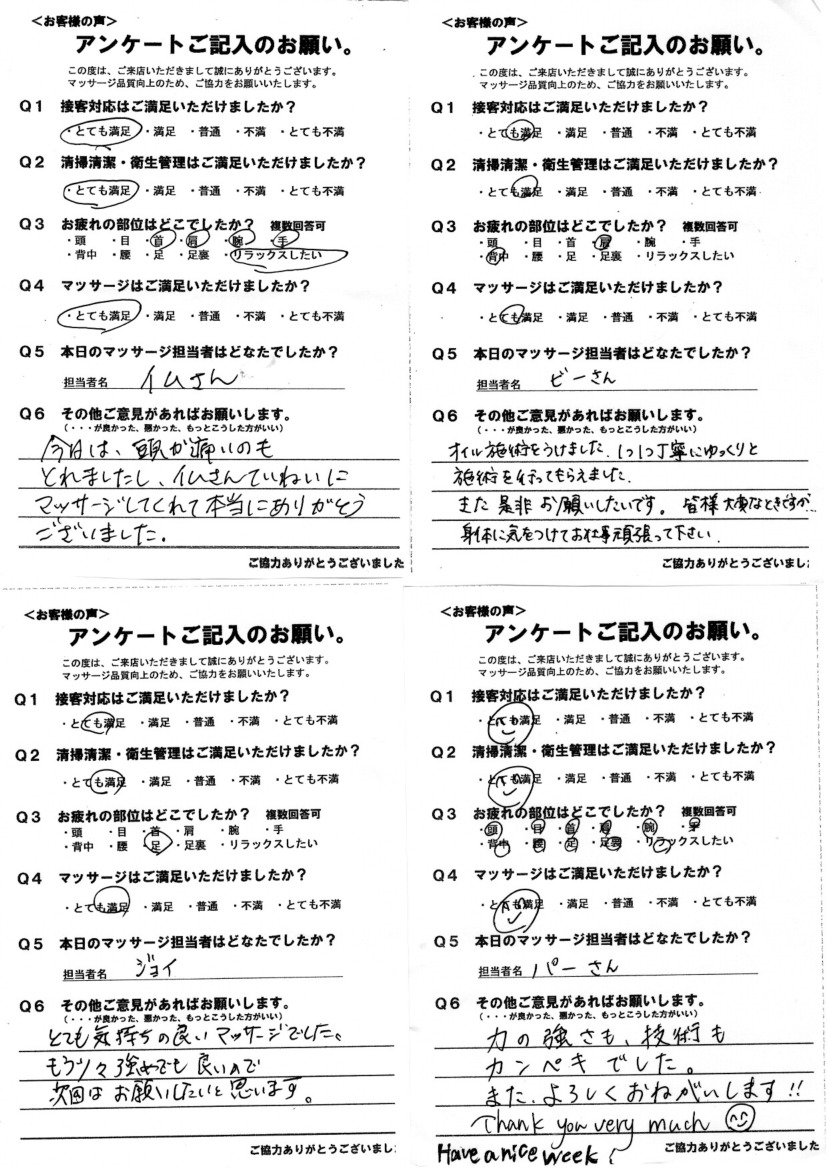 ＜お客様の声＞
アンケートご記入のお願い。
この度は、ご来店いただきまして誠にありがとうございます。
マッサージ品質向上のため、ご協力をお願いいたします。
Q1 接客対応はご満足いただけましたか？
・とても満足 ・満足 ・普通 ・不満 ・とても不満
Q2 清掃清潔・衛生管理はご満足いただけましたか？
・とても満足 ・満足 ・普通 ・不満 ・とても不満
Q3 お疲れの部位はどこでしたか？ 複数回答可
・頭 ・目 ・首 ・肩 ・腕 ・手
・背中 ・腰 ・足 ・足裏 ・リラックスしたい
Q4 マッサージはご満足いただけましたか？
・とても満足 ・満足 ・普通 ・不満 ・とても不満
Q5 本日のマッサージ担当者はどなたでしたか？
担当者名 イムさん
Q6 その他ご意見があればお願いします。
（・・・が良かった、悪かった、もっとこうした方がいい）
今日は、頭が痛いのも
とれましたし、イムさんていねいに
マッサージしてくれて本当にありがとう
ございました。
ご協力ありがとうございました
＜お客様の声＞
アンケートご記入のお願い。
この度は、ご来店いただきまして誠にありがとうございます。
マッサージ品質向上のため、ご協力をお願いいたします。
Q1 接客対応はご満足いただけましたか？
・とても満足 ・満足 ・普通 ・不満 ・とても不満
Q2 清掃清潔・衛生管理はご満足いただけましたか？
・とても満足 ・満足 ・普通 ・不満 ・とても不満
Q3 お疲れの部位はどこでしたか？ 複数回答可
・頭 ・目 ・首 ・肩 ・腕 ・手
・背中 ・腰 ・足 ・足裏 ・リラックスしたい
Q4 マッサージはご満足いただけましたか？
・とても満足 ・満足 ・普通 ・不満 ・とても不満
Q5 本日のマッサージ担当者はどなたでしたか？
担当者名 ビーさん
Q6 その他ご意見があればお願いします。
（・・・が良かった、悪かった、もっとこうした方がいい）
オイル施術をうけました。1つ1つ丁寧にゆっくりと
施術を行ってもらえました。
また是非お願いしたいです。皆様大変なときですが、
身体に気をつけてお仕事頑張って下さい。
ご協力ありがとうございまし
＜お客様の声＞
アンケートご記入のお願い。
この度は、ご来店いただきまして誠にありがとうございます。
マッサージ品質向上のため、ご協力をお願いいたします。
Q1 接客対応はご満足いただけましたか？
・とても満足 ・満足 ・普通 ・不満 ・とても不満
Q2 清掃清潔・衛生管理はご満足いただけましたか？
・とても満足 ・満足 ・普通 ・不満 ・とても不満
Q3 お疲れの部位はどこでしたか？ 複数回答可
・頭 ・目 ・首 ・肩 ・腕 ・手
・背中 ・腰 ・足 ・足裏 ・リラックスしたい
Q4 マッサージはご満足いただけましたか？
・とても満足 ・満足 ・普通 ・不満 ・とても不満
Q5 本日のマッサージ担当者はどなたでしたか？
担当者名 ジョイ
Q6 その他ご意見があればお願いします。
（・・・が良かった、悪かった、もっとこうした方がいい）
とても気持ちの良いマッサージでした。
もう少々強めでも良いので
次回はお願いしたいと思います。
ご協力ありがとうございまし
＜お客様の声＞
アンケートご記入のお願い。
この度は、ご来店いただきまして誠にありがとうございます。
マッサージ品質向上のため、ご協力をお願いいたします。
Q1 接客対応はご満足いただけましたか？
・とても満足 ・満足 ・普通 ・不満 ・とても不満
Q2 清掃清潔・衛生管理はご満足いただけましたか？
・とても満足 ・満足 ・普通 ・不満 ・とても不満
Q3 お疲れの部位はどこでしたか？ 複数回答可
・頭 ・目 ・首 ・肩 ・腕 ・手
・背中 ・腰 ・足 ・足裏 ・リラックスしたい
Q4 マッサージはご満足いただけましたか？
・とても満足 ・満足 ・普通 ・不満 ・とても不満
Q5 本日のマッサージ担当者はどなたでしたか？
担当者名 パーさん
Q6 その他ご意見があればお願いします。
（・・・が良かった、悪かった、もっとこうした方がいい）
力の強さも、技術も
カンペキでした。
また、よろしくおねがいします!!
Thank you very much
Have a nice week
ご協力ありがとうございまし